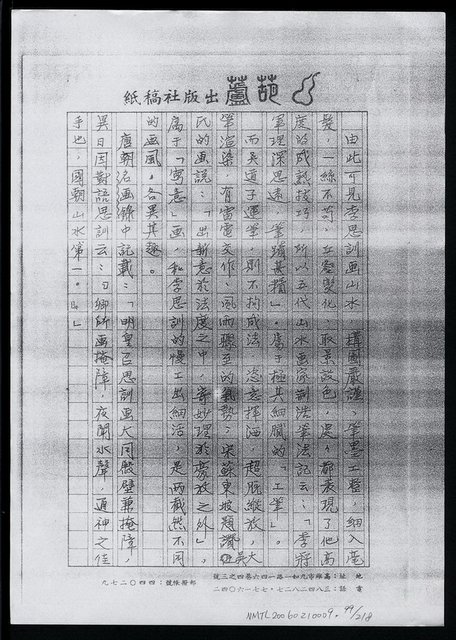 葫蘆出版社稿紙
由此可見李思訓画山水,構圖嚴謹、筆墨工整,細入毫
髮,一絲不苟,丘壑變化,取景設色,奠都表現了他高
度的成熟技巧,所以五代山水画家荆浩筆法記云:「李將
軍理深思遠,筆蹟甚精」。屬于極其細膩的「工筆」。
而吳道子運筆,則不拘成法,恣意揮洒,超脫縱放,大
筆渲染,有雷電交作、風雨驟至的氣勢;宋蘇東坡題讚吳
氏的画說:「出新意於法度之中,寄妙理於豪放之外」,
屬于「寫意」画,和李思訓的慢工出細活,是兩截然不同
的画風,各異其趣。
唐朝名画錄中記載:「明皇召思訓画大同殿壁兼掩障,
異日因對語思訓云:曰卿所画掩障,夜聞水聲,通神之佳
手也,國朝山水第一。」
地址:高雄市九如一路一四六巷四之三號
電話:三八四二八二七.七七一六〇四二
郵撥帳號:四四〇二七九
NMTL20060210009. 99/218